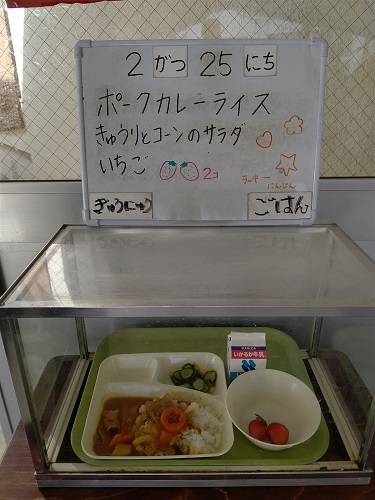 2 がつ 25 にち
ポークカレーライス
きゅうりとコーンのサラダ
いちご 2コ
ラッキーにんじん
ぎゅうにゅう ごはん
いかるが牛乳